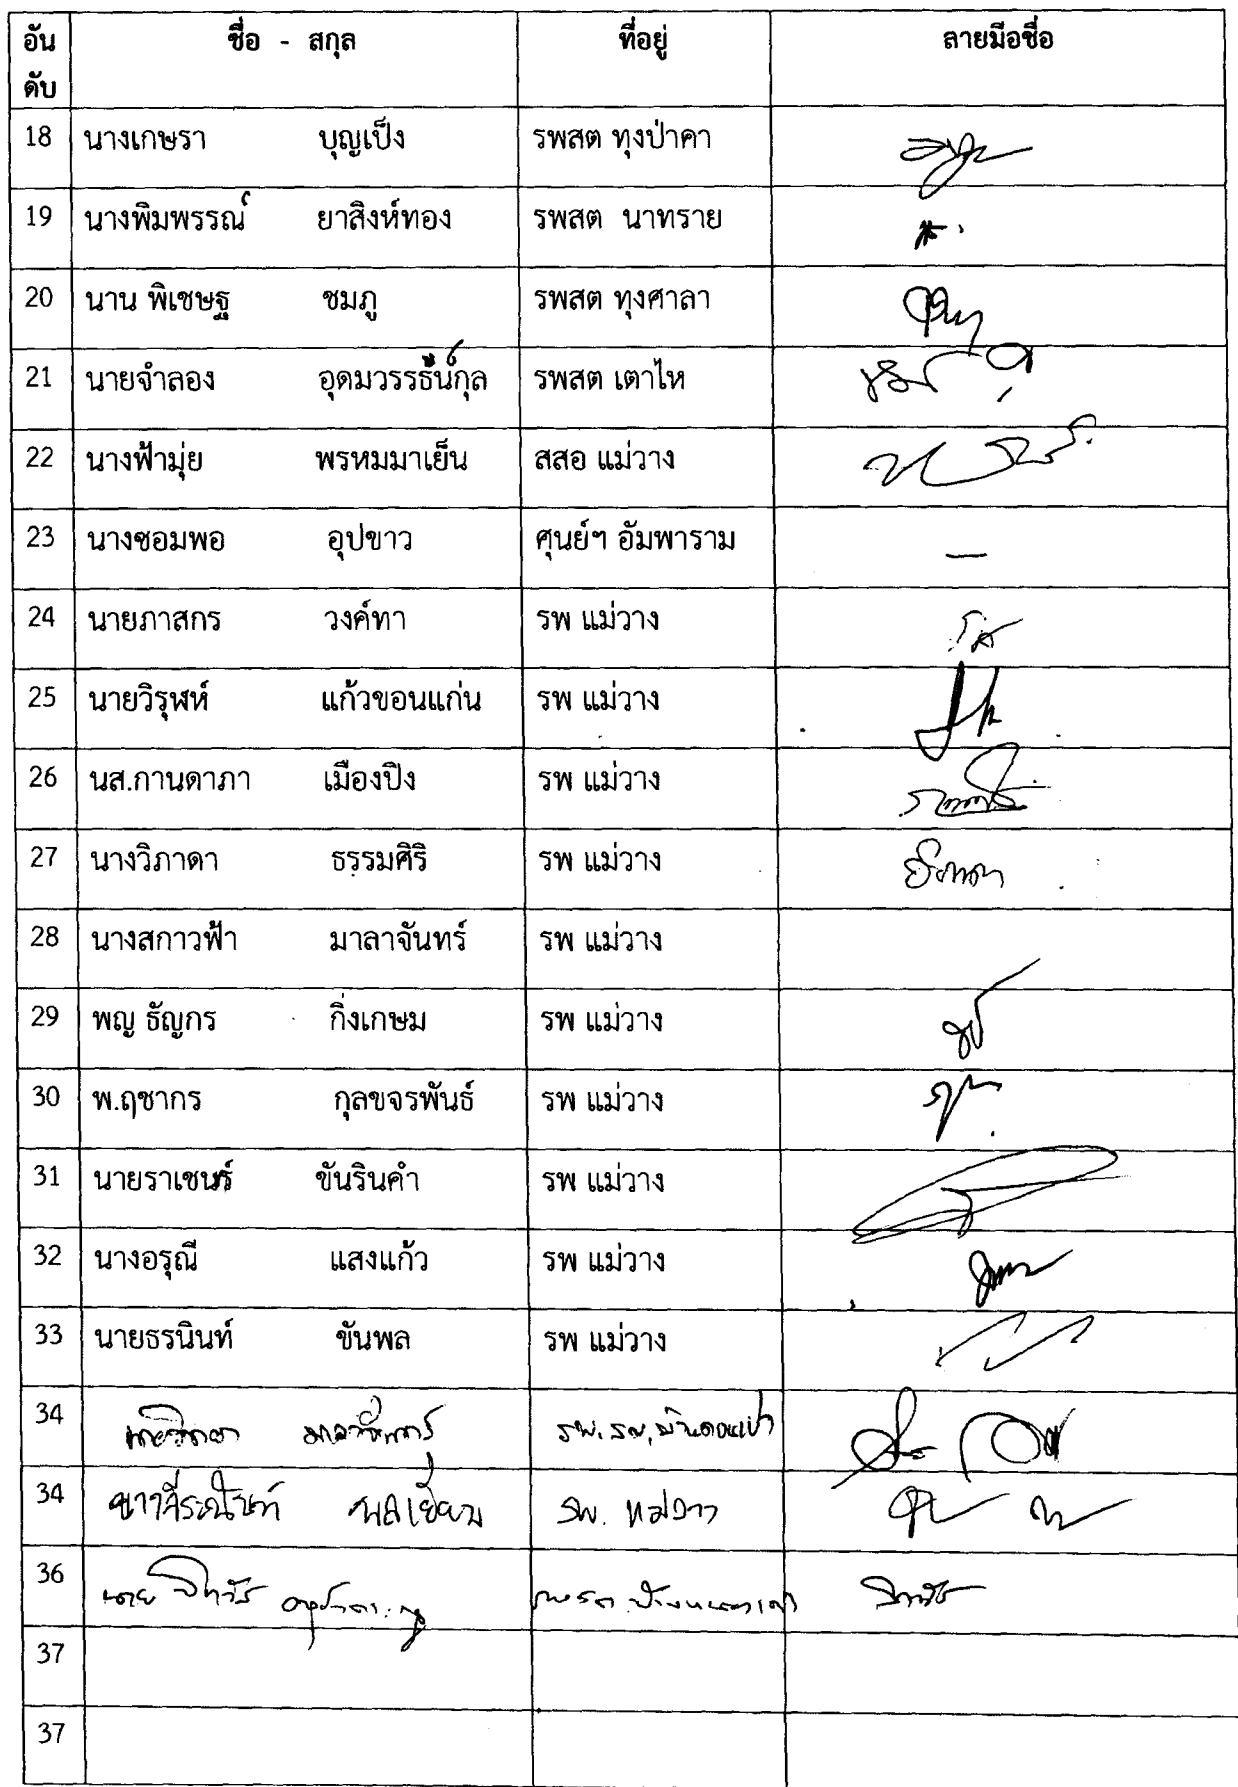 อันดับ ชื่อ - สกุล ที่อยู่ ลายมือชื่อ
18 นางเกษรา บุญเป็ง รพสต ทุงป่าคา
19 นางพิมพรรณ์ ยาสิงห์ทอง รพสต นาทราย
20 นาน พิเชษฐ ชมภู รพสต ทุงศาลา
21 นายจำลอง อุดมวรรธน์กุล รพสต เตาไห
22 นางฟ้ามุ่ย พรหมมาเย็น สสอ แม่วาง
23 นางซอมพอ อุปขาว ศูนย์ฯ อัมพาราม —
24 นายภาสกร วงค์ทา รพ แม่วาง
25 นายวิรุฬห์ แก้วขอนแก่น รพ แม่วาง
26 นส.กานดาภา เมืองปิง รพ แม่วาง
27 นางวิภาดา ธรรมศิริ รพ แม่วาง วิภาดา
28 นางสกาวฟ้า มาลาจันทร์ รพ แม่วาง
29 พญ ธัญกร กิ่งเกษม รพ แม่วาง
30 พ.ฤชากร กุลขจรพันธ์ รพ แม่วาง
31 นายราเชนร์ ขันรินคำ รพ แม่วาง
32 นางอรุณี แสงแก้ว รพ แม่วาง
33 นายธรนินท์ ขันพล รพ แม่วาง
34 มาลาจันทร์
34 รพ. แม่วาง
36 นาย
37
37